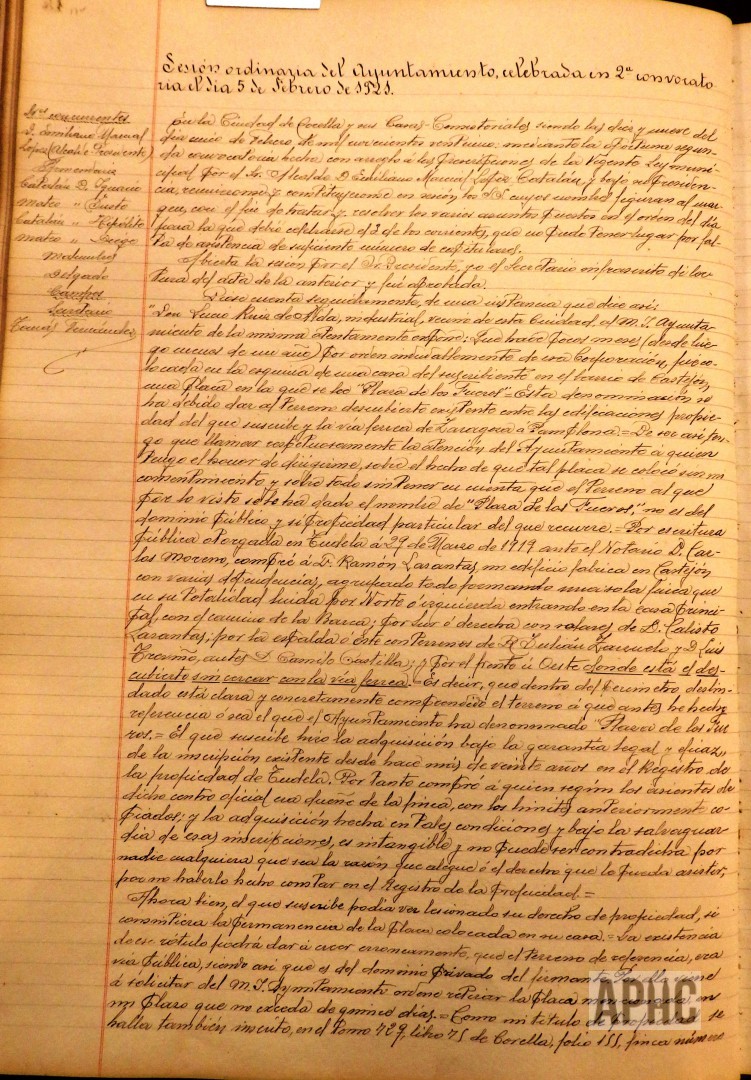 Sesión ordinaria del Ayuntamiento, celebrada en 2ª convocato
ria el día 5 de Febrero de 1921.
Sres concurrentes
D. Emiliano Marcial
López (Alcalde Presidente)
Catalán D. Ignacio
Mateo " Justo
Catalán " Hipólito
Mateo " Diego
Delgado
Tomás Fernández
En la Ciudad de Corella y sus Casas-Consistoriales siendo las diez y nueve del
día cinco de Febrero, de mil novecientos veintiuno: mediante la oportuna segun-
da convocatoria hecha con arreglo á las prescripciones de la vigente Ley muni-
cipal por el Sr. Alcalde D. Emiliano Marcial López Catalán, y bajo su Presiden-
cia, reunieronse y constituyeronse en sesión los S.S. cuyos nombres figuran al mar-
gen, con el fin de tratar y resolver los varios asuntos puestos en el orden del día
para la que debió celebrarse el 2 de los corrientes, que no pudo tener lugar por fal-
ta de asistencia de suficiente número de capitulares.
Abierta la sesión por el Sr. Presidente, yo el Secretario infrascrito dí lec-
tura del acta de la anterior y fué aprobada.
Dióse cuenta seguidamente, de una instancia que dice así:
"Don Lucio Ruiz de Alda, industrial, vecino de esta Ciudad, al M. I. Ayunta-
miento de la misma atentamente expone: Que hace pocos meses (desde lue-
go menos de un año) por orden indudablemente de esa Corporación, fué co-
locada en la esquina de una casa del suscribiente en el barrio de Castejón,
una placa en la que se lee "Plaza de los Fueros" = Esta denominación se
ha debido dar al terreno descubierto existente entre las edificaciones propie-
dad del que suscribe y la vía ferrea de Zaragoza á Pamplona. = De ser así, ten-
go que llamar respetuosamente la atención del Ayuntamiento á quien
tengo el honor de dirigirme, sobre el hecho de que tal placa se colocó sin mi
consentimiento y sobre todo sin tener en cuenta, que el terreno al que
por lo visto se le ha dado el nombre de "Plaza de los Fueros," no es del
dominio público y sí propiedad particular del que recurre. = Por escritura
pública otorgada en Tudela á 29 de Marzo de 1919 ante el Notario D. Car-
los Moreno, compré á D. Ramón Lasantas, un edificio fábrica en Castejón
con varias dependencias, agrupado todo formando una sola finca que
en su totalidad linda por Norte ó izquierda entrando en la casa princi-
pal, con el camino de la Barca; por Sur ó derecha con solares de D. Calisto
Lasantas; por la espalda ó Este con terrenos de D. Julián Zarzuelo y D. Luis
Treviño, antes D. Camilo Castilla; y por el frente ú Oeste donde está el des-
cubierto sin cercar con la vía ferrea. = Es decir, que dentro del perimetro deslin-
dado está clara y concretamente comprendido el terreno á que antes he hecho
referencia ó sea el que el Ayuntamiento ha denominado "Plaza de los Fue-
ros. = El que suscribe hizo la adquisición bajo la garantía legal y eficaz,
de la inscripción existente desde hace más de veinte años en el Registro de
la propiedad de Tudela. Por tanto compré á quien según los asientos de
dicho centro oficial era dueño de la finca, con los limites anteriorment co-
piados; y la adquisición hecha en tales condiciones y bajo la salvaguar
dia de esas inscripciones, es intangible y no puede ser contradicha por
nadie cualquiera que sea la razón que alegue ó el derecho que le pueda asistir,
por no haberlo hecho constar en el Registro de la Propiedad. =
Ahora bien, el que suscribe podía ver lesionado su derecho de propiedad, si
consintiera la permanencia de la placa colocada en su casa. = La existencia
de ese rótulo podrá dar á creer erroneamente, que el terreno de referencia, era
vía pública, siendo así que es del dominio privado del firmante
á solicitar del M. I. Ayuntamiento ordene retirar la placa mencionada, en
un plazo que no exceda de quince dias. = Como mi título de propiedad se
halla también inscrito, en el tomo 729, libro 75 de Corella, folio 155, finca número
APHC